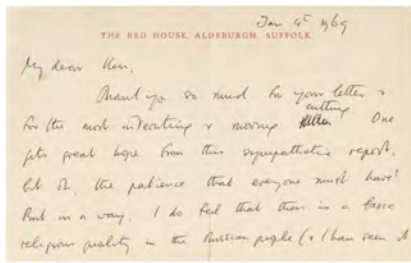 Jan 4th 1969
THE RED HOUSE, ALDEBURGH, SUFFOLK.
My dear Ken,
Thank you so much for your letter &
cutting
for the most interesting & moving One
gets great hope from this sympathetic report,
but oh, the patience that everyone must have!
But in a way, I do feel that there is a basic
religious quality in the Russian people (& I have seen it